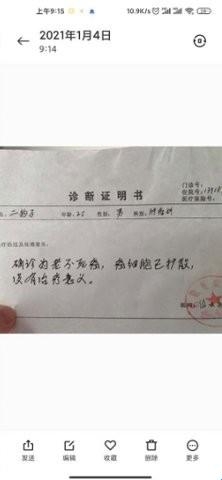 上午9:15
10.9K/s
2021年1月4日
9:14
诊断证明书
门诊号:
住院号:
医疗保险号:
二狗子
年龄: 25
性别: 男
科别: 肿瘤科
确诊为老不死癌, 癌细胞已扩散,
没有治疗意义。
发送
编辑
收藏
删除
更多